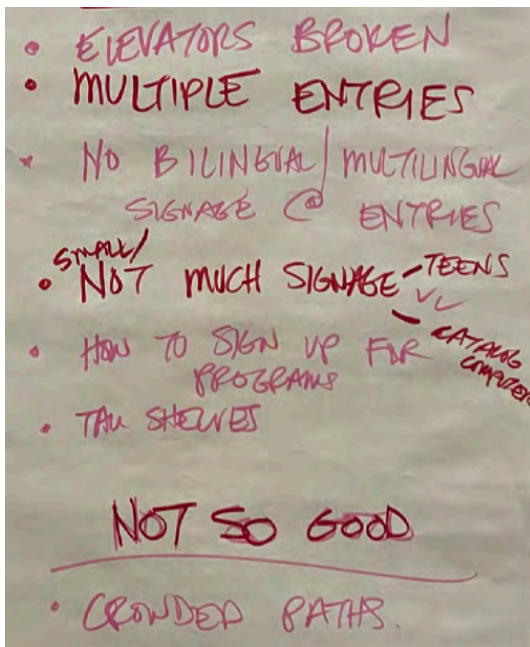 • ELEVATORS BROKEN
• MULTIPLE ENTRIES
• NO BILINGUAL/MULTILINGUAL
SIGNAGE @ ENTRIES
SMALL/
• NOT MUCH SIGNAGE – TEENS
– CATALOG
COMPUTERS
• HOW TO SIGN UP FOR
PROGRAMS
• TALL SHELVES
NOT SO GOOD
• CROWDED PATHS.